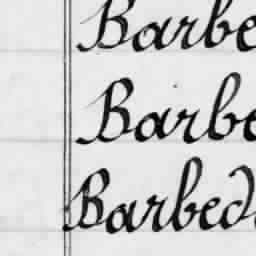 Barbe
Barbe
Barbed